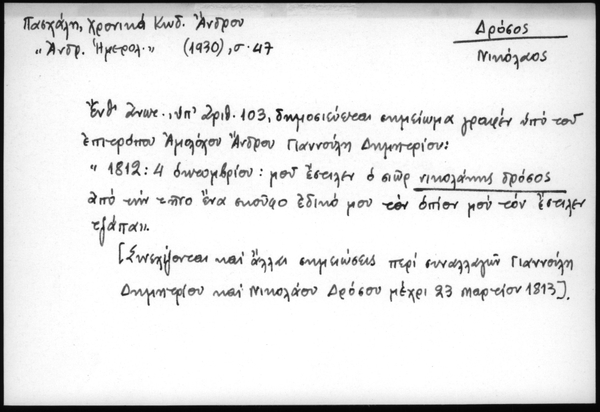 Πασχάλη, Χρονικά Κωδ. Άνδρου
"Άνδρ. Ημερολ." (1930), σ. 47
Δρόσος
Νικόλαος
Ένθ' ανωτ., υπ' αριθ. 103, δημοσιεύεται σημείωμα γραφέν υπό του
επιτρόπου Αμολόχου Άνδρου Γιαννούλη Δημητρίου:
"1812: 4 οκτωμβρίου: μού έστιλεν ο σιώρ νικολάκης δρόσος
από την τήνο ένα σκούφο εδικό μου τον οπίον μού τον έστιλεν
τζάπα".
[Συνεχίζονται και άλλαι σημειώσεις περί συναλλαγών Γιαννούλη
Δημητρίου και Νικολάου Δρόσου μέχρι 23 Μαρτίου 1813].